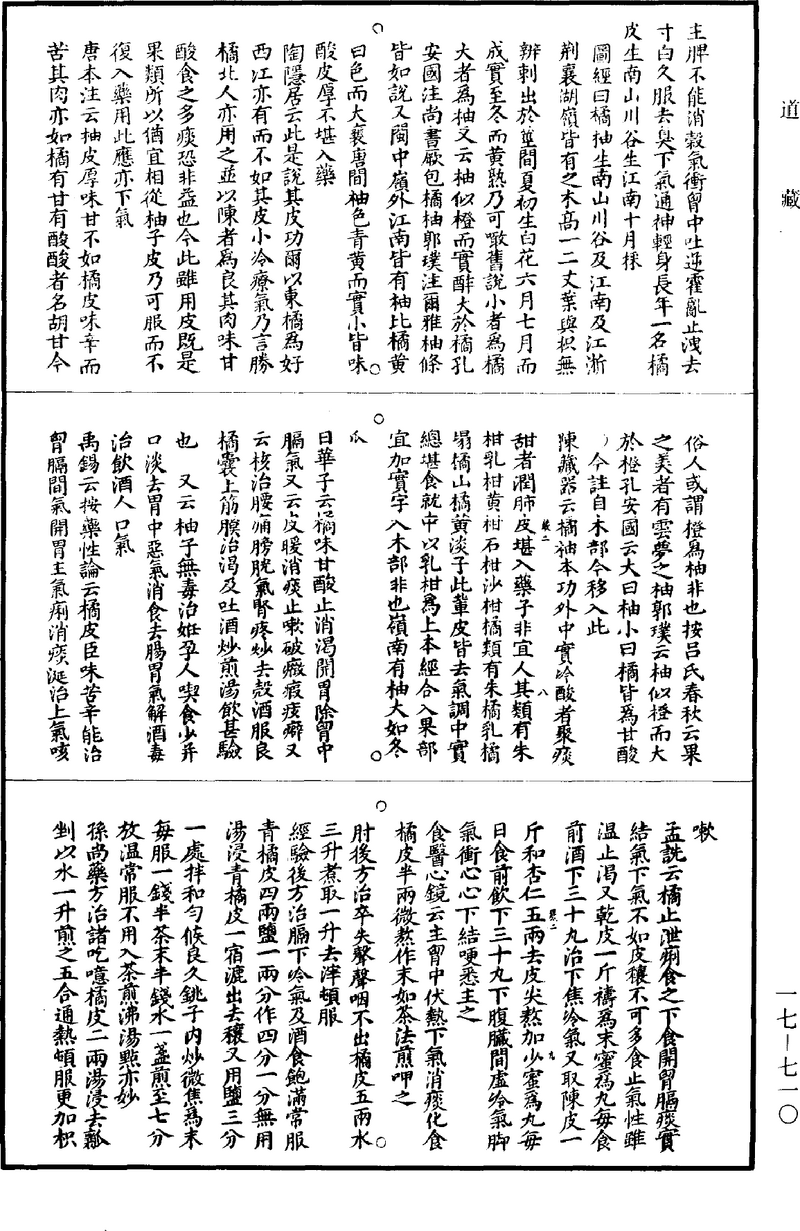 道藏
主脾不能消穀氣衝胷中吐逆霍亂止洩去
寸白久服去臭下氣通神輕身長年一名橘
皮生南山川谷生江南十月採
圖經曰橘柚生南山川谷及江南及江浙
荆襄湖嶺皆有之木高一二丈葉與枳無
辨刺出於莖間夏初生白花六月七月而
成實至冬而黄熟乃可噉舊說小者爲橘
大者爲柚又云柚似橙而實酢大於橘孔
安國注尚書厥包橘柚郭璞注爾雅柚條
皆如說又閩中嶺外江南皆有柚比橘黄
曰色而大襄唐間柚色青黄而實小皆味
酸皮厚不堪入藥
陶隱居云此是說其皮功爾以東橘爲好
西江亦有而不如其皮小冷療氣乃言勝
橘北人亦用之並以陳者爲良其肉味甘
酸食之多痰恐非益也今此雖用皮既是
果類所以猶宜相從柚子皮乃可服而不
復入藥用此應亦下氣
唐本注云柚皮厚味甘不如橘皮味辛而
苦其肉亦如橘有甘有酸酸者名胡甘今
俗人或謂橙爲柚非也按吕氏春秋云果
之美者有雲夢之柚郭璞云柚似橙而大
於橙孔安國云大曰柚小曰橘皆爲甘酸
今註自木部今移入此
陳藏器云橘柚本功外中實冷酸者聚痰
甜者潤肺皮堪入藥子非宜人其類有朱
柑乳柑黄柑石柑沙柑橘類有朱橘乳橘
塌橘山橘黄淡子此輩皮皆去氣調中實
緫堪食就中以乳柑爲上本經合入果部
宜加實字入木部非也嶺南有柚大如冬
瓜
日華子云橘味甘酸止消渴開胃除胷中
膈氣又云皮暖消痰止嗽破癥瘕痃癖又
云核治腰痛膀胱氣腎疼炒去殼酒服良
橘囊上筋膜治渴及吐酒炒煎湯飲甚驗
也 又云柚子無毒治姙孕人喫食少并
口淡去胃中惡氣消食去腸胃氣解酒毒
治飲酒人口氣
禹錫云按藥性論云橘皮臣味苦辛能治
胷膈間氣開胃主氣痢消痰涎治上氣咳
嗽
孟詵云橘止泄痢食之下食開胷膈痰實
結氣下氣不如皮穰不可多食止氣性雖
温止渴又乾皮一斤擣爲末蜜爲丸每食
前酒下三十丸治下焦冷氣又取陳皮一
斤和杏仁五兩去皮尖熬加少蜜爲丸每
日食前飲下三十丸下腹臟間虚冷氣脚
氣衝心心下結哽悉主之
食醫心鏡云主胷中伏熱下氣消痰化食
橘皮半兩微熬作末如茶法煎呷之
肘後方治卒失聲聲咽不出橘皮五兩水
三升煮取一升去滓頓服
經驗後方治膈下冷氣及酒食飽滿常服
青橘皮四兩鹽一兩分作四分一分無用
湯浸青橘皮一宿漉出去穰又用鹽三分
一處拌和匀候良久銚子内炒微焦爲末
每服一錢半茶末半錢水一盞煎至七分
放温常服不用入茶煎沸湯點亦妙
孫尚藥方治諸吃噫橘皮二兩湯浸去瓤
剉以水一升煎之五合通熱頓服更加枳
一七—七一〇